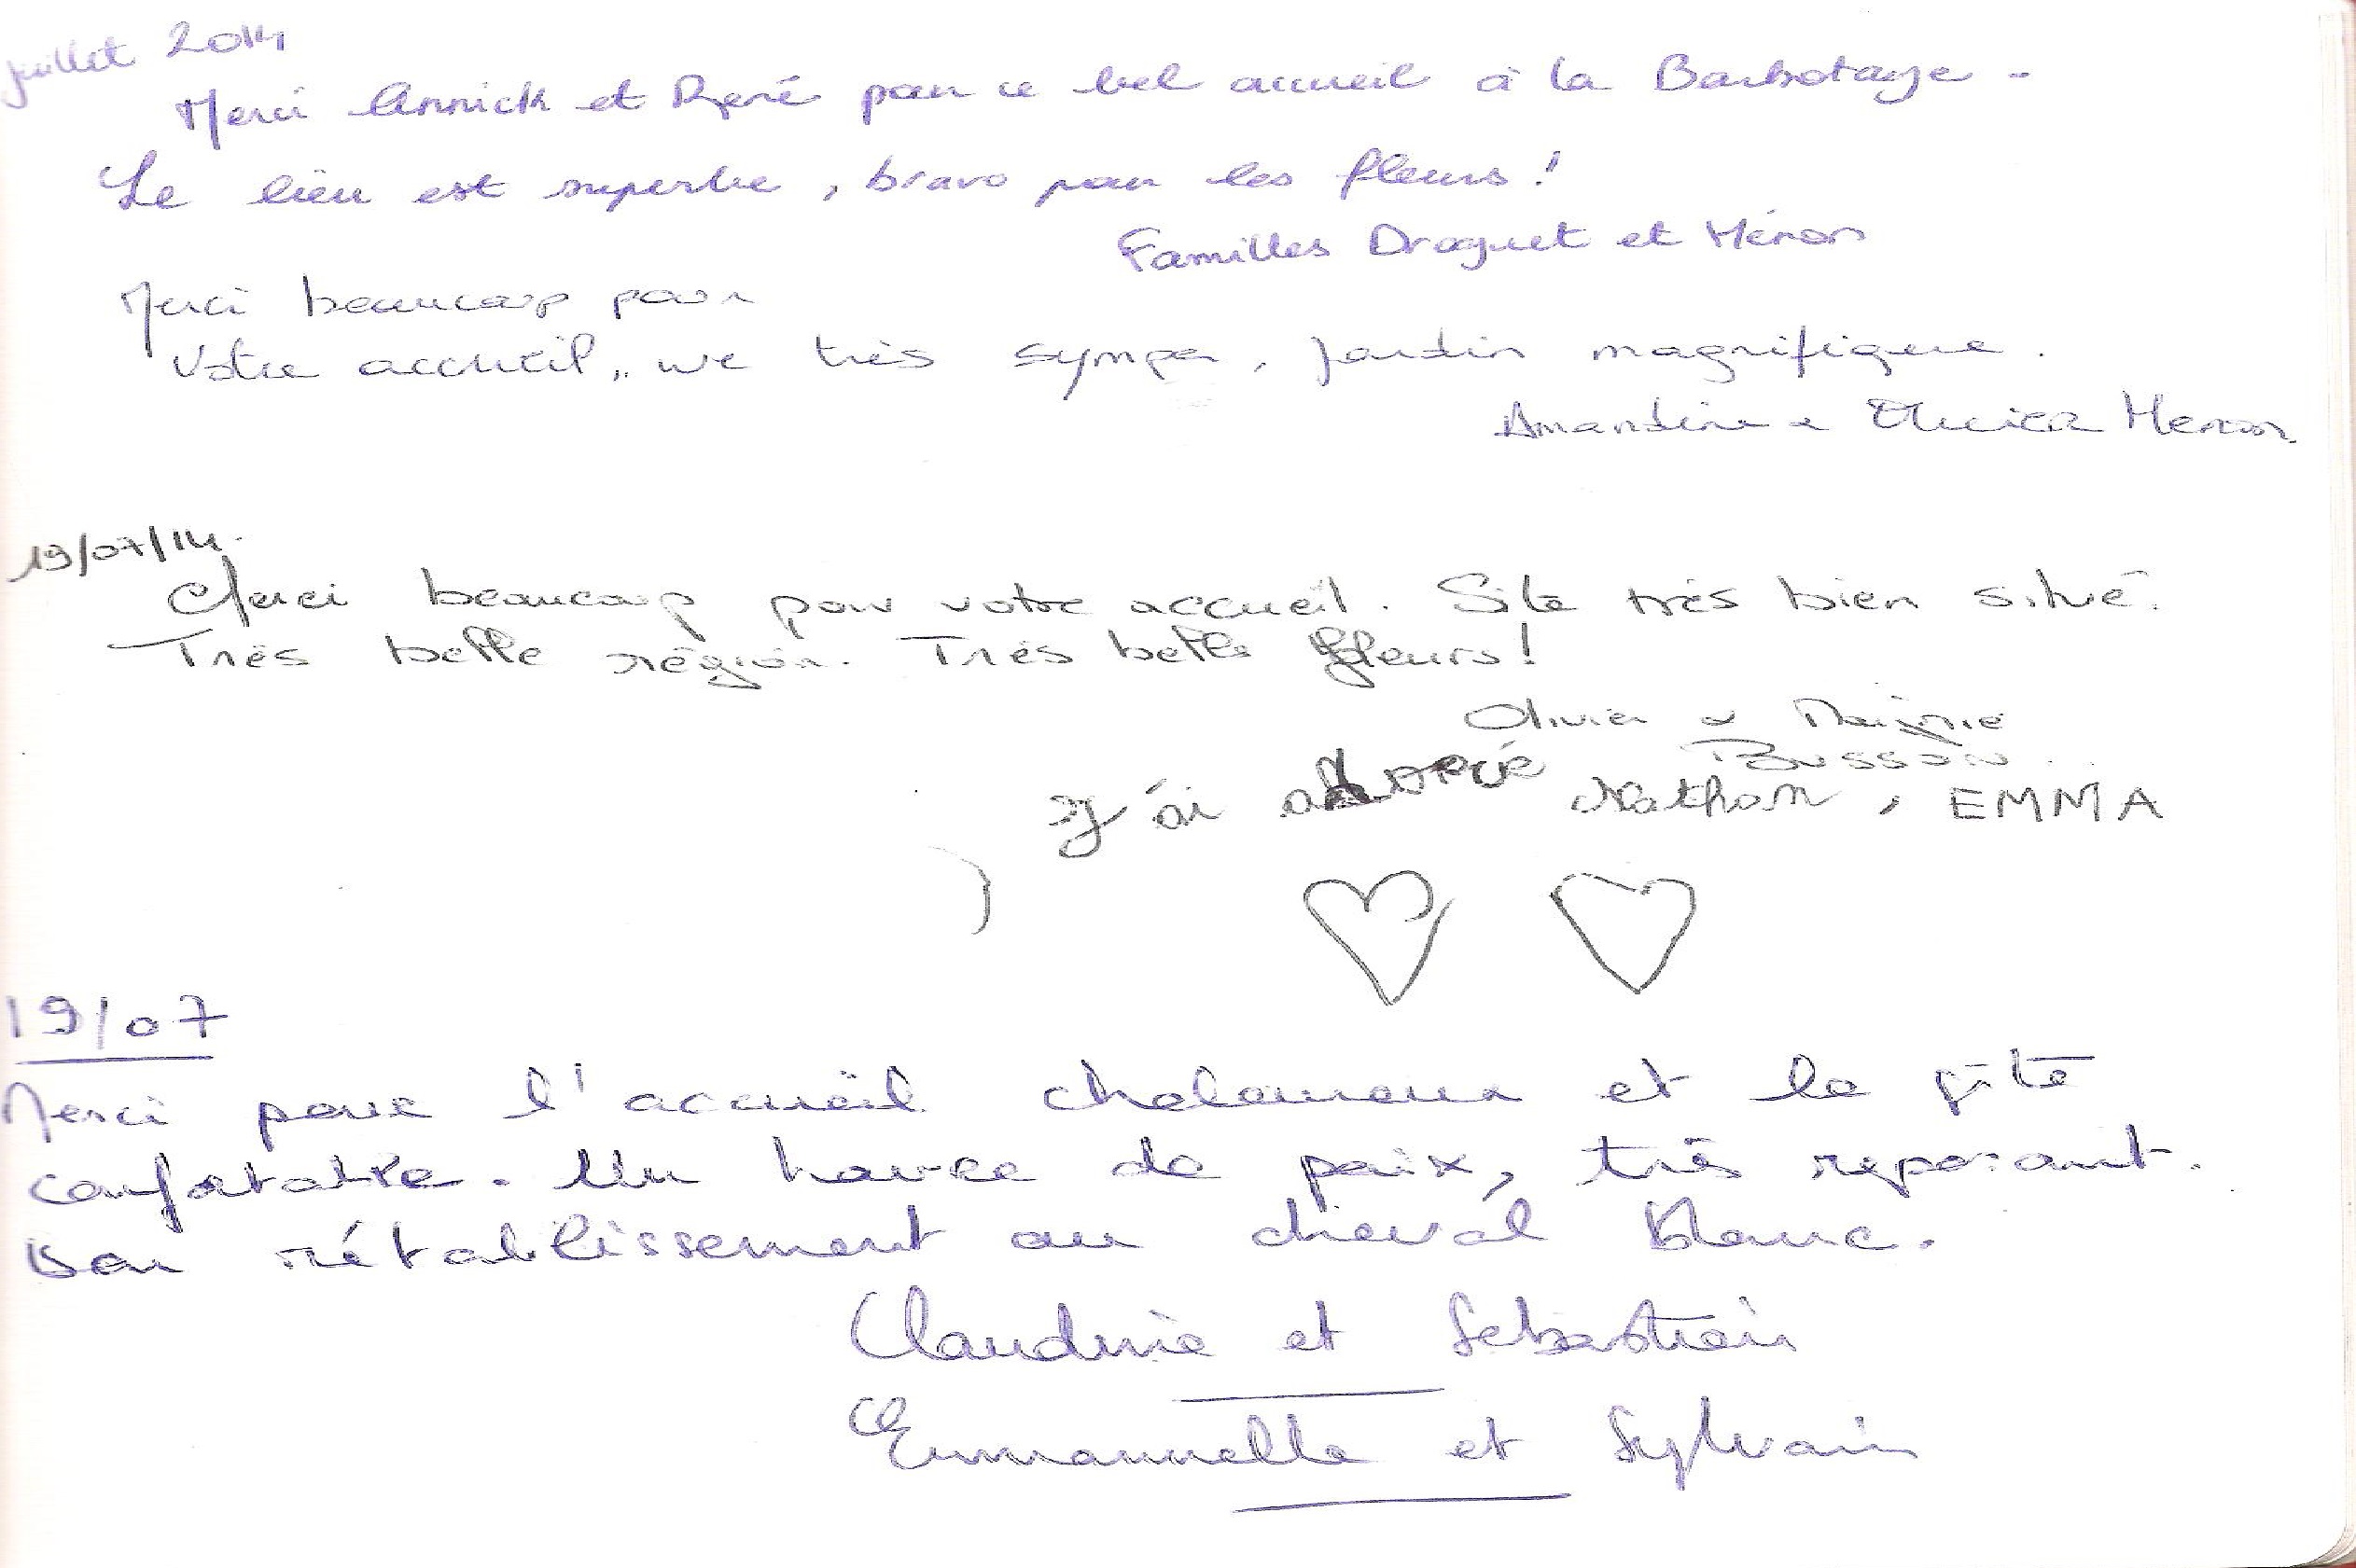 juillet 2014
Merci Annick et René pour ce bel accueil à la Barbotaye -
Le lieu est superbe, bravo pour les fleurs !
Familles Droguet et Ménon
Merci beaucoup pour
Votre accueil, we très sympa, Jardin magnifique.
Amandine & Olivier Menon
19/07/14.
Merci beaucoup pour votre accueil. Site très bien situé.
Très belle région. Très belle fleurs !
Olivier &
Busson
J'ai adoré Nathan, EMMA
19/07
Merci pour l'accueil chaleureux et le gîte
confortable. Un havre de paix, très reposant.
Bon rétablissement au cheval blanc.
Claudine et Sébastien
Emmanuelle et Sylvain